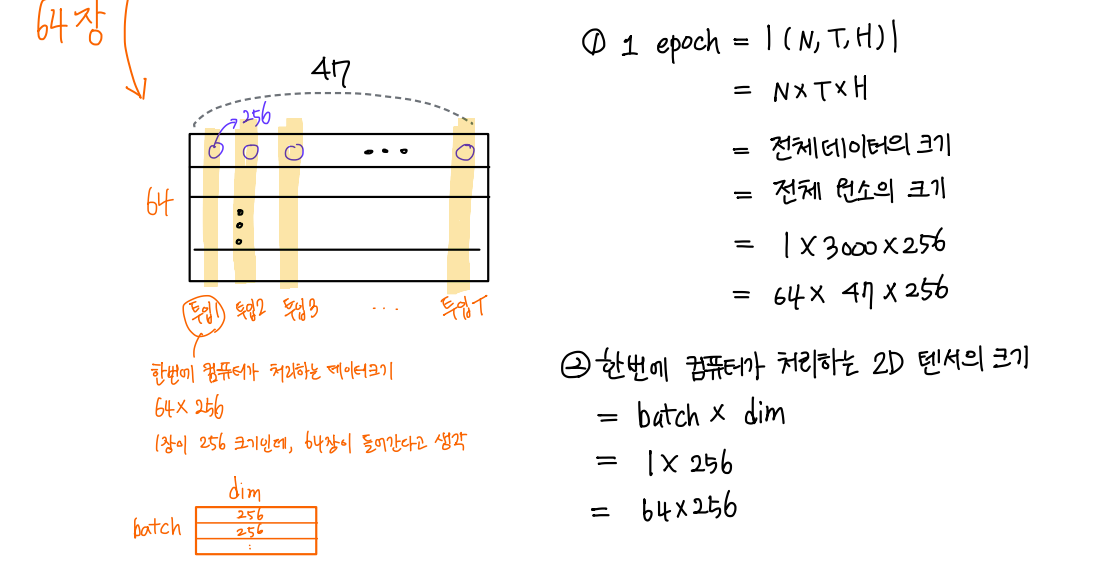 64장
47
256
64
투입1 투입2 투입3 ... 투입T
한번에 컴퓨터가 처리하는 데이터크기
64 × 256
1장이 256 크기인데, 64장이 들어간다고 생각
dim
batch
256
256
:
① 1 epoch = |(N, T, H)|
= N × T × H
= 전체데이터의 크기
= 전체 원소의 크기
= 1 × 3000 × 256
= 64 × 47 × 256
② 한번에 컴퓨터가 처리하는 2D 텐서의 크기
= batch × dim
= 1 × 256
= 64 × 256